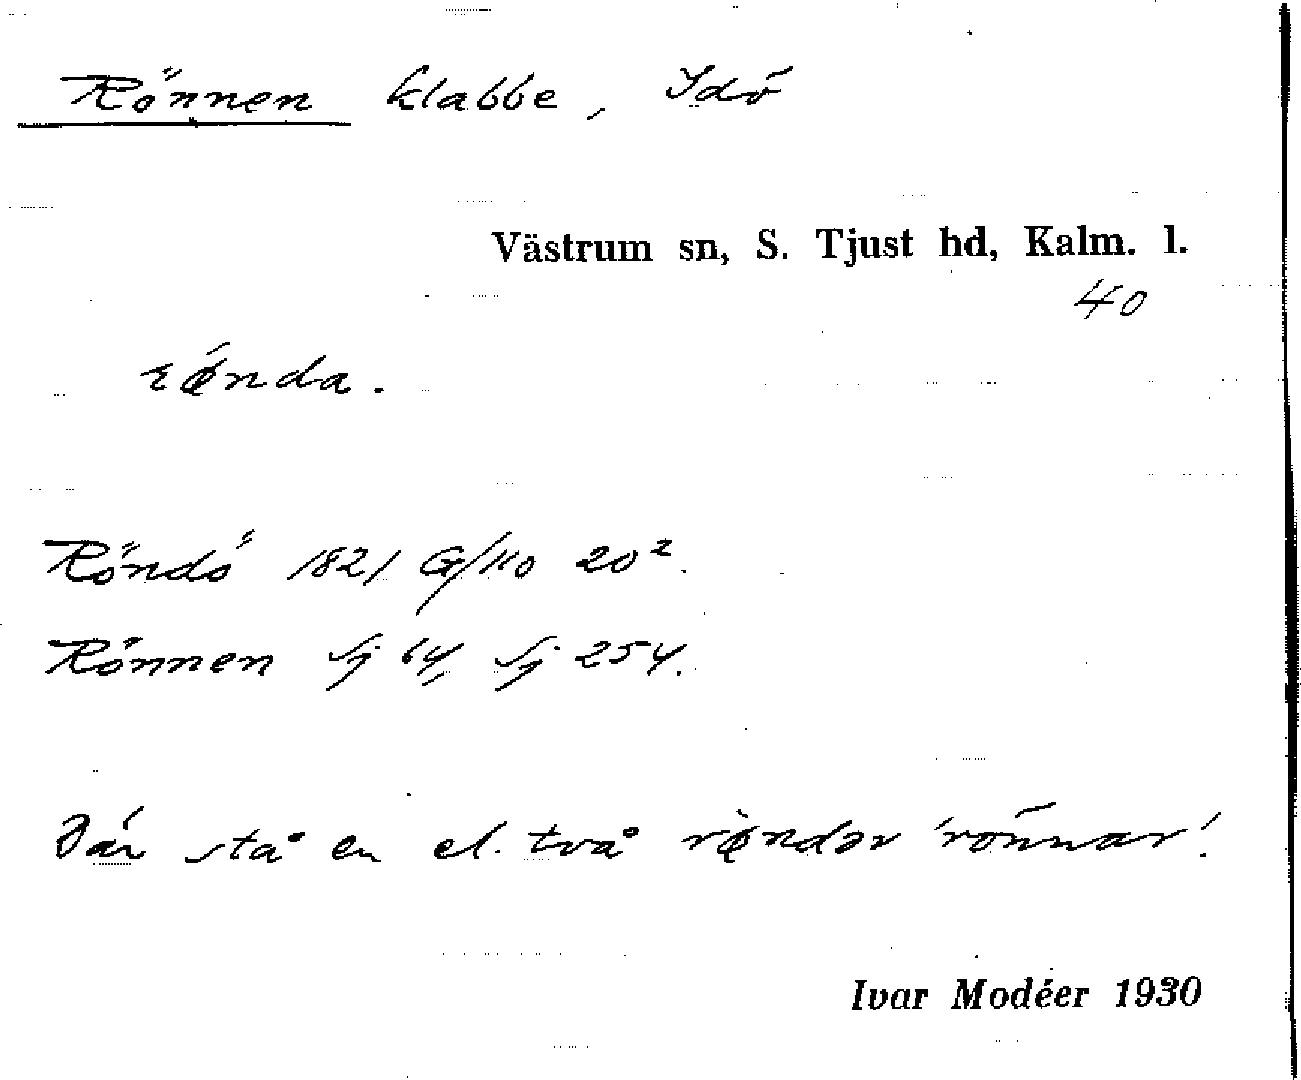 Rönnen klabbe, Idö
Västrum sn, S. Tjust hd, Kalm. l.
40
rǿnda.
Röndö 1821 G/110 20².
Rönnen Sj 64, Sj 254.
Där stå en el. två rø̀ndər 'rönnar'.
Ivar Modéer 1930